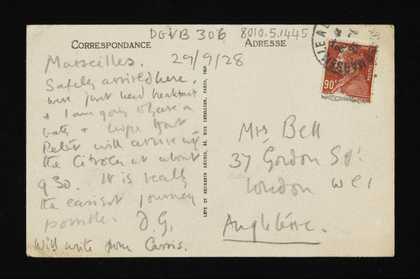 DGVB 306 8010.5.1445
CORRESPONDANCE
ADRESSE
Marseilles.
29/9/28
Safely arrived here.
have just had breakfast
& I am going to have a
bath & hope that
Peter will arrive up
the Citroen at about
9.30. It is really
the easiest journey
possible. D.G.
Will write from Cassis.
Mrs Bell
37 Gordon Sq:
London WC1
Angleterre.
90c